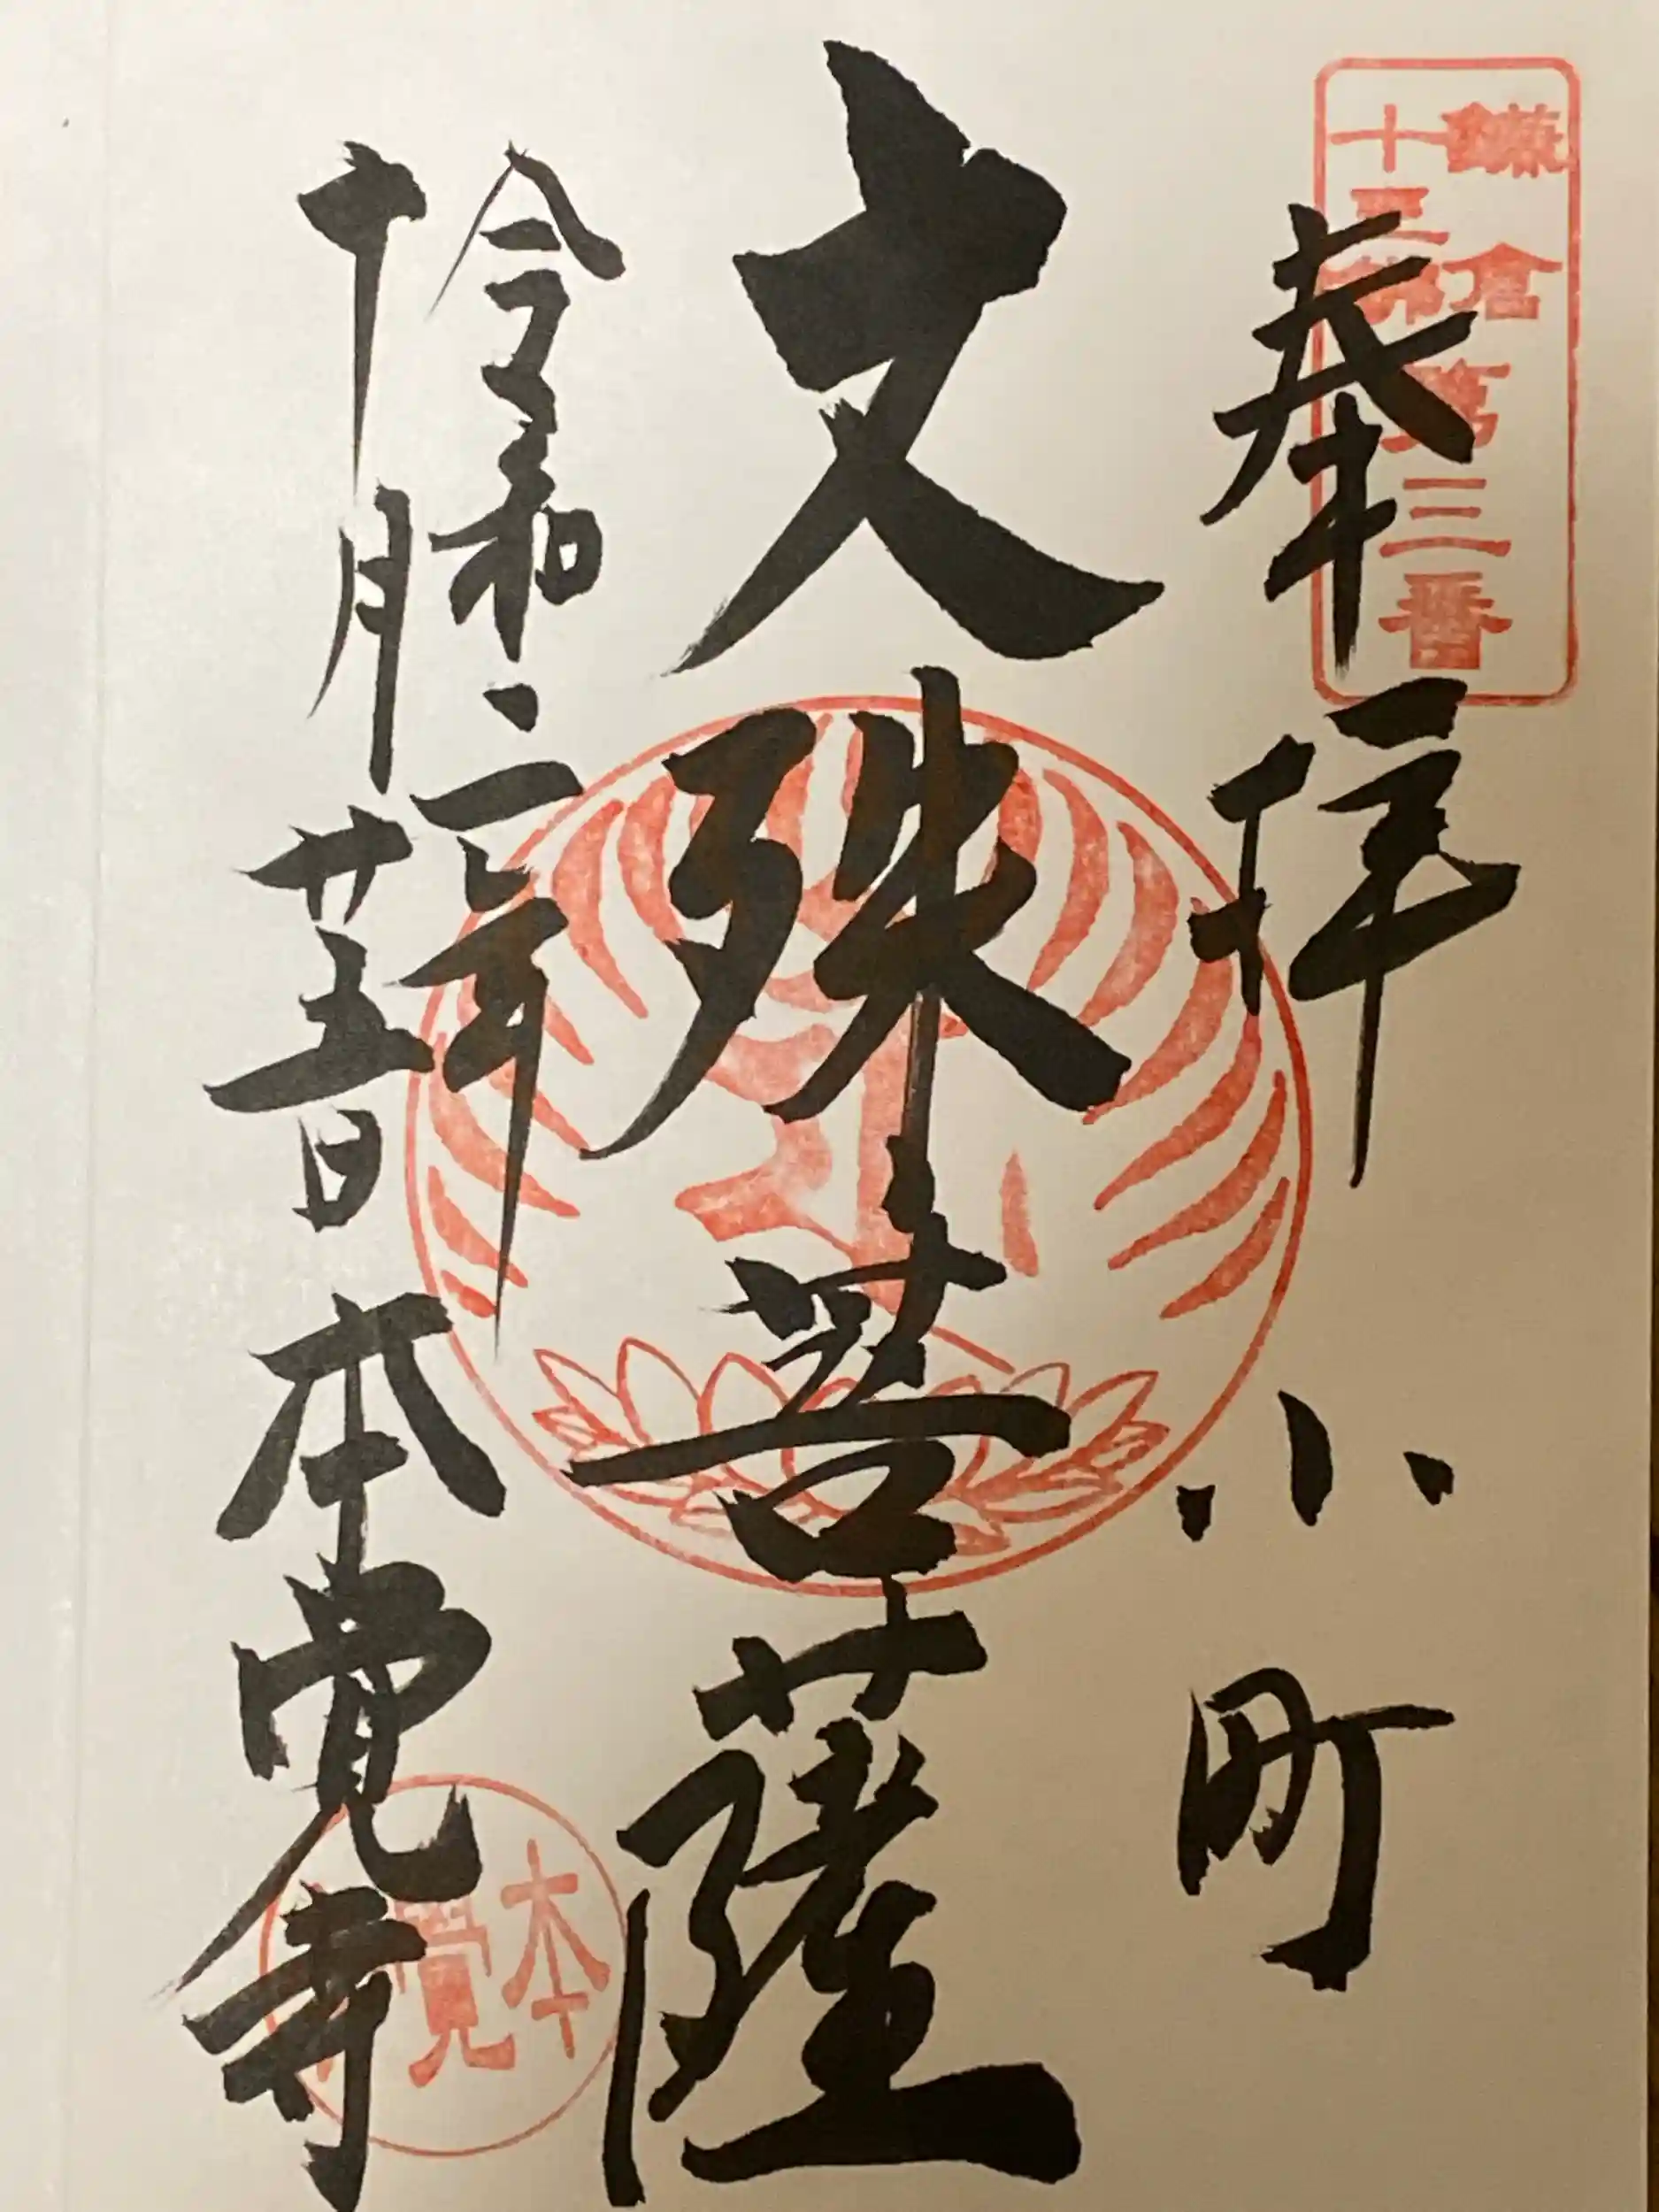 鎌倉
十三佛第三番
奉拝 小町
文殊菩薩
令和二年
十月廿五日 本覚寺
本覺